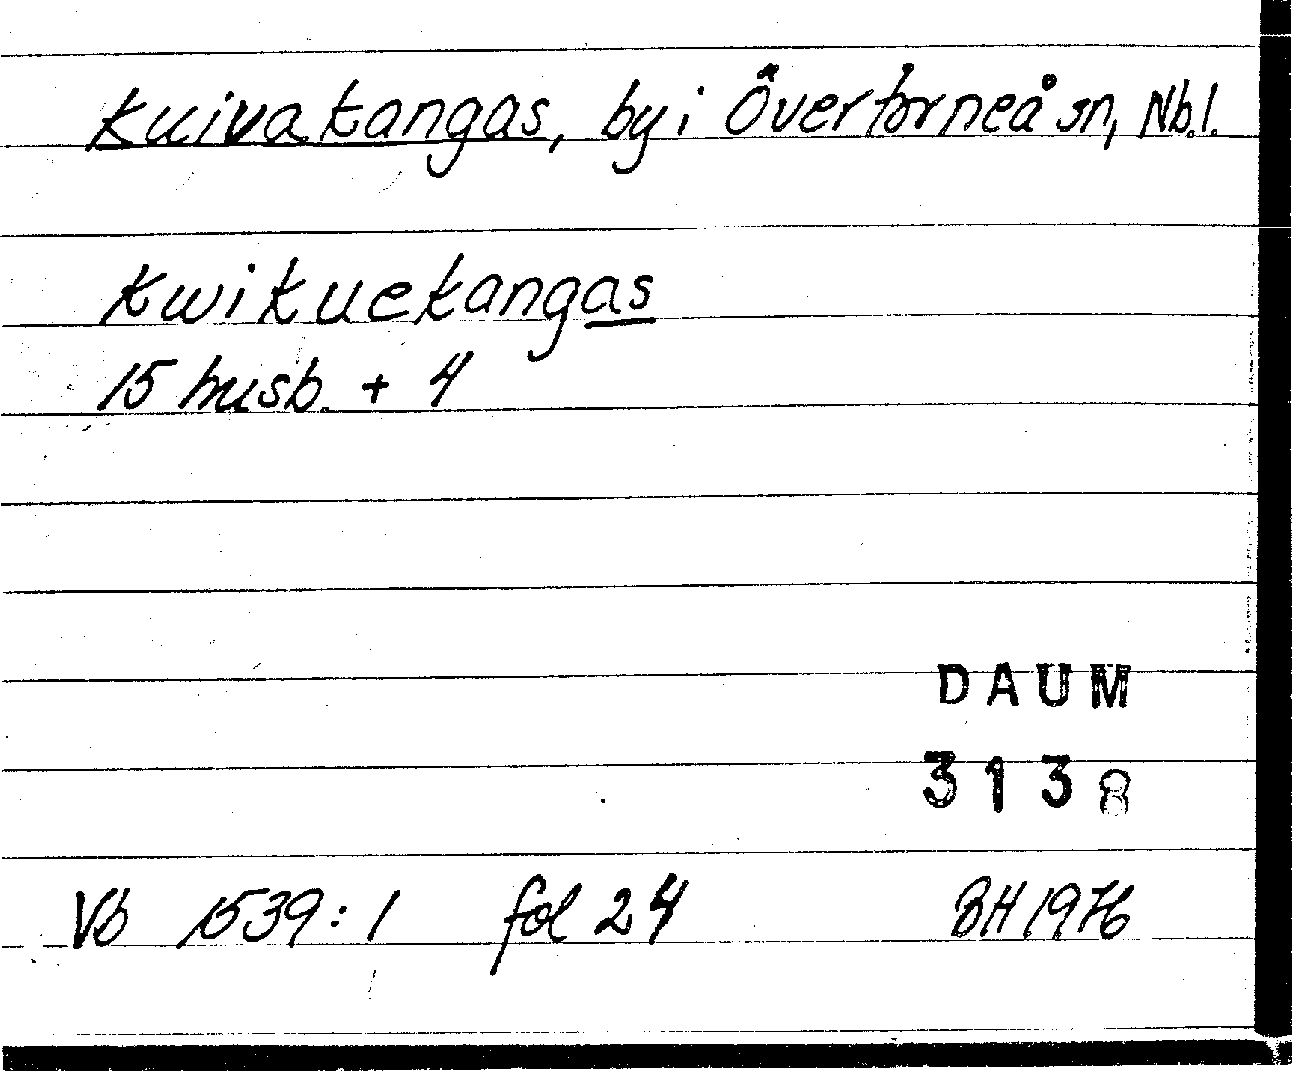 Kuivakangas, by i Övertorneå sn, Nb.l.
Kwikuekangas
15 husb. + 4
DAUM
3138
Vb 1539:1 fol 24 BH 1976